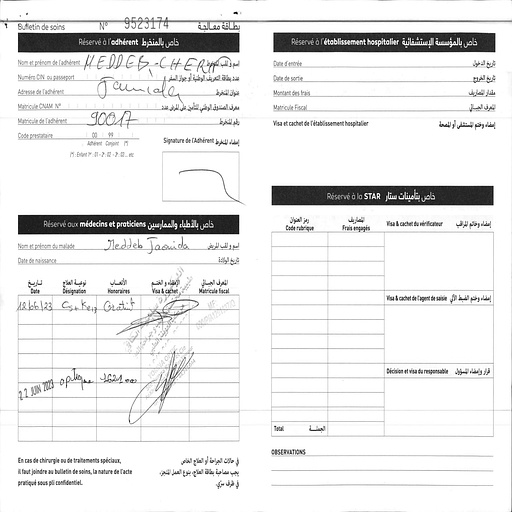 Bulletin de soins N° 9523174 بطاقة معالجة
Réservé à l'adhérent خاص بالمنخرط
Nom et prénom de l'adhérent MEDDEB اسم و لقب المنخرط
Numéro CIN ou passeport عدد بطاقة التعريف الوطنية أو جواز السفر
Adresse de l'adhérent عنوان المنخرط
Matricule CNAM N° معرف الصندوق الوطني للتأمين على المرض عدد
Matricule de l'adhérent 90017 رقم المنخرط
Code prestataire 00 99
Adhérent Conjoint (*)
(*) : Enfant 1er : 01 - 2e : 02 - 3e : 03 ... etc
Signature de l'Adhérent إمضاء المنخرط
Réservé aux médecins et praticiens خاص بالأطباء والممارسين
Nom et prénom du malade Meddeb Jaouida اسم و لقب المريض
Date de naissance تاريخ الولادة
تاريخ نوعية العلاج الأتعاب الإمضاء و الختم المعرف الجبائي
Date Désignation Honoraires Visa & cachet Matricule fiscal
Gratuit
22 JUIN 2023 optique
En cas de chirurgie ou de traitements spéciaux,
il faut joindre au bulletin de soins, la nature de l'acte
pratiqué sous pli confidentiel.
في حالات الجراحة أو العلاج الخاص
يجب مصاحبة بطاقة العلاج، بنوع العمل المنجز،
في ظرف سري.
Réservé à l'établissement hospitalier خاص بالمؤسسة الإستشفائية
Date d'entrée تاريخ الدخول
Date de sortie تاريخ الخروج
Montant des frais مقدار المصاريف
Matricule Fiscal المعرف الجبائي
Visa et cachet de l'établissement hospitalier إمضاء وختم المستشفى أو المصحة
Réservé à la STAR خاص بتأمينات ستار
رمز العنوان المصاريف
Code rubrique Frais engagés
Visa & cachet du vérificateur إمضاء وخاتم المراقب
Visa & cachet de l'agent de saisie إمضاء وختم الضبط الآلي
Décision et visa du responsable قرار وإمضاء المسؤول
Total الجملة
OBSERVATIONS